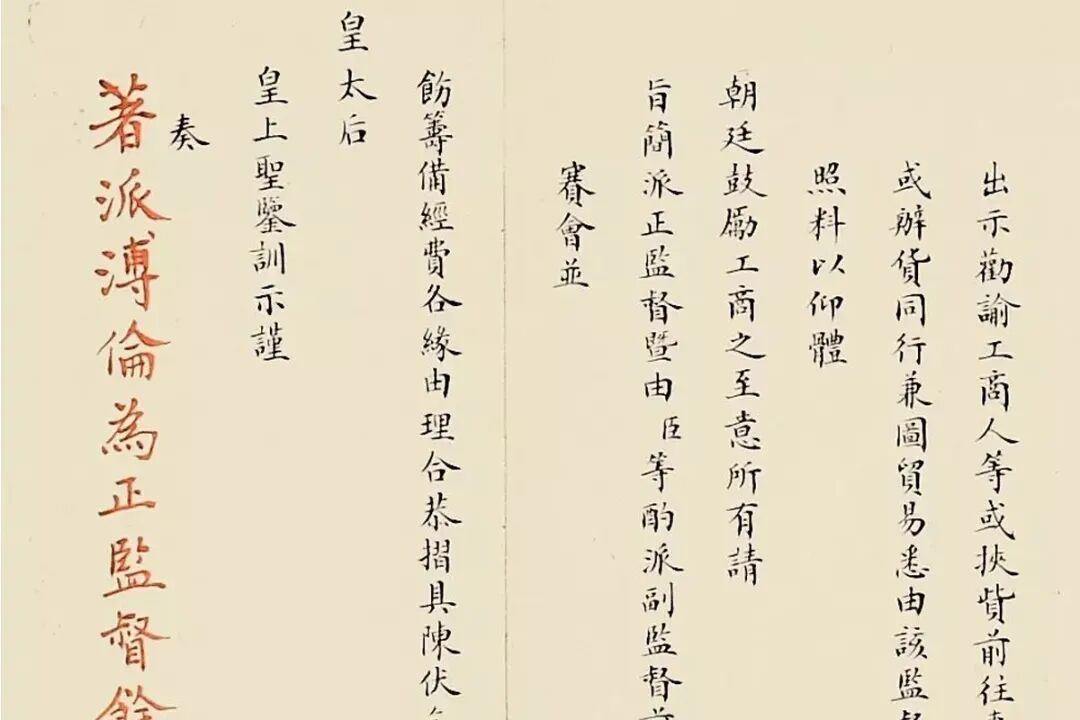 出示勸諭工商人等或挾貲前往
或辦貨同行兼圖貿易悉由該監督
照料以仰體
朝廷鼓勵工商之至意所有請
旨簡派正監督暨由臣等酌派副監督
賽會並
飭籌備經費各緣由理合恭摺具陳伏
皇太后
皇上聖鑒訓示謹
奏
著派溥倫為正監督餘